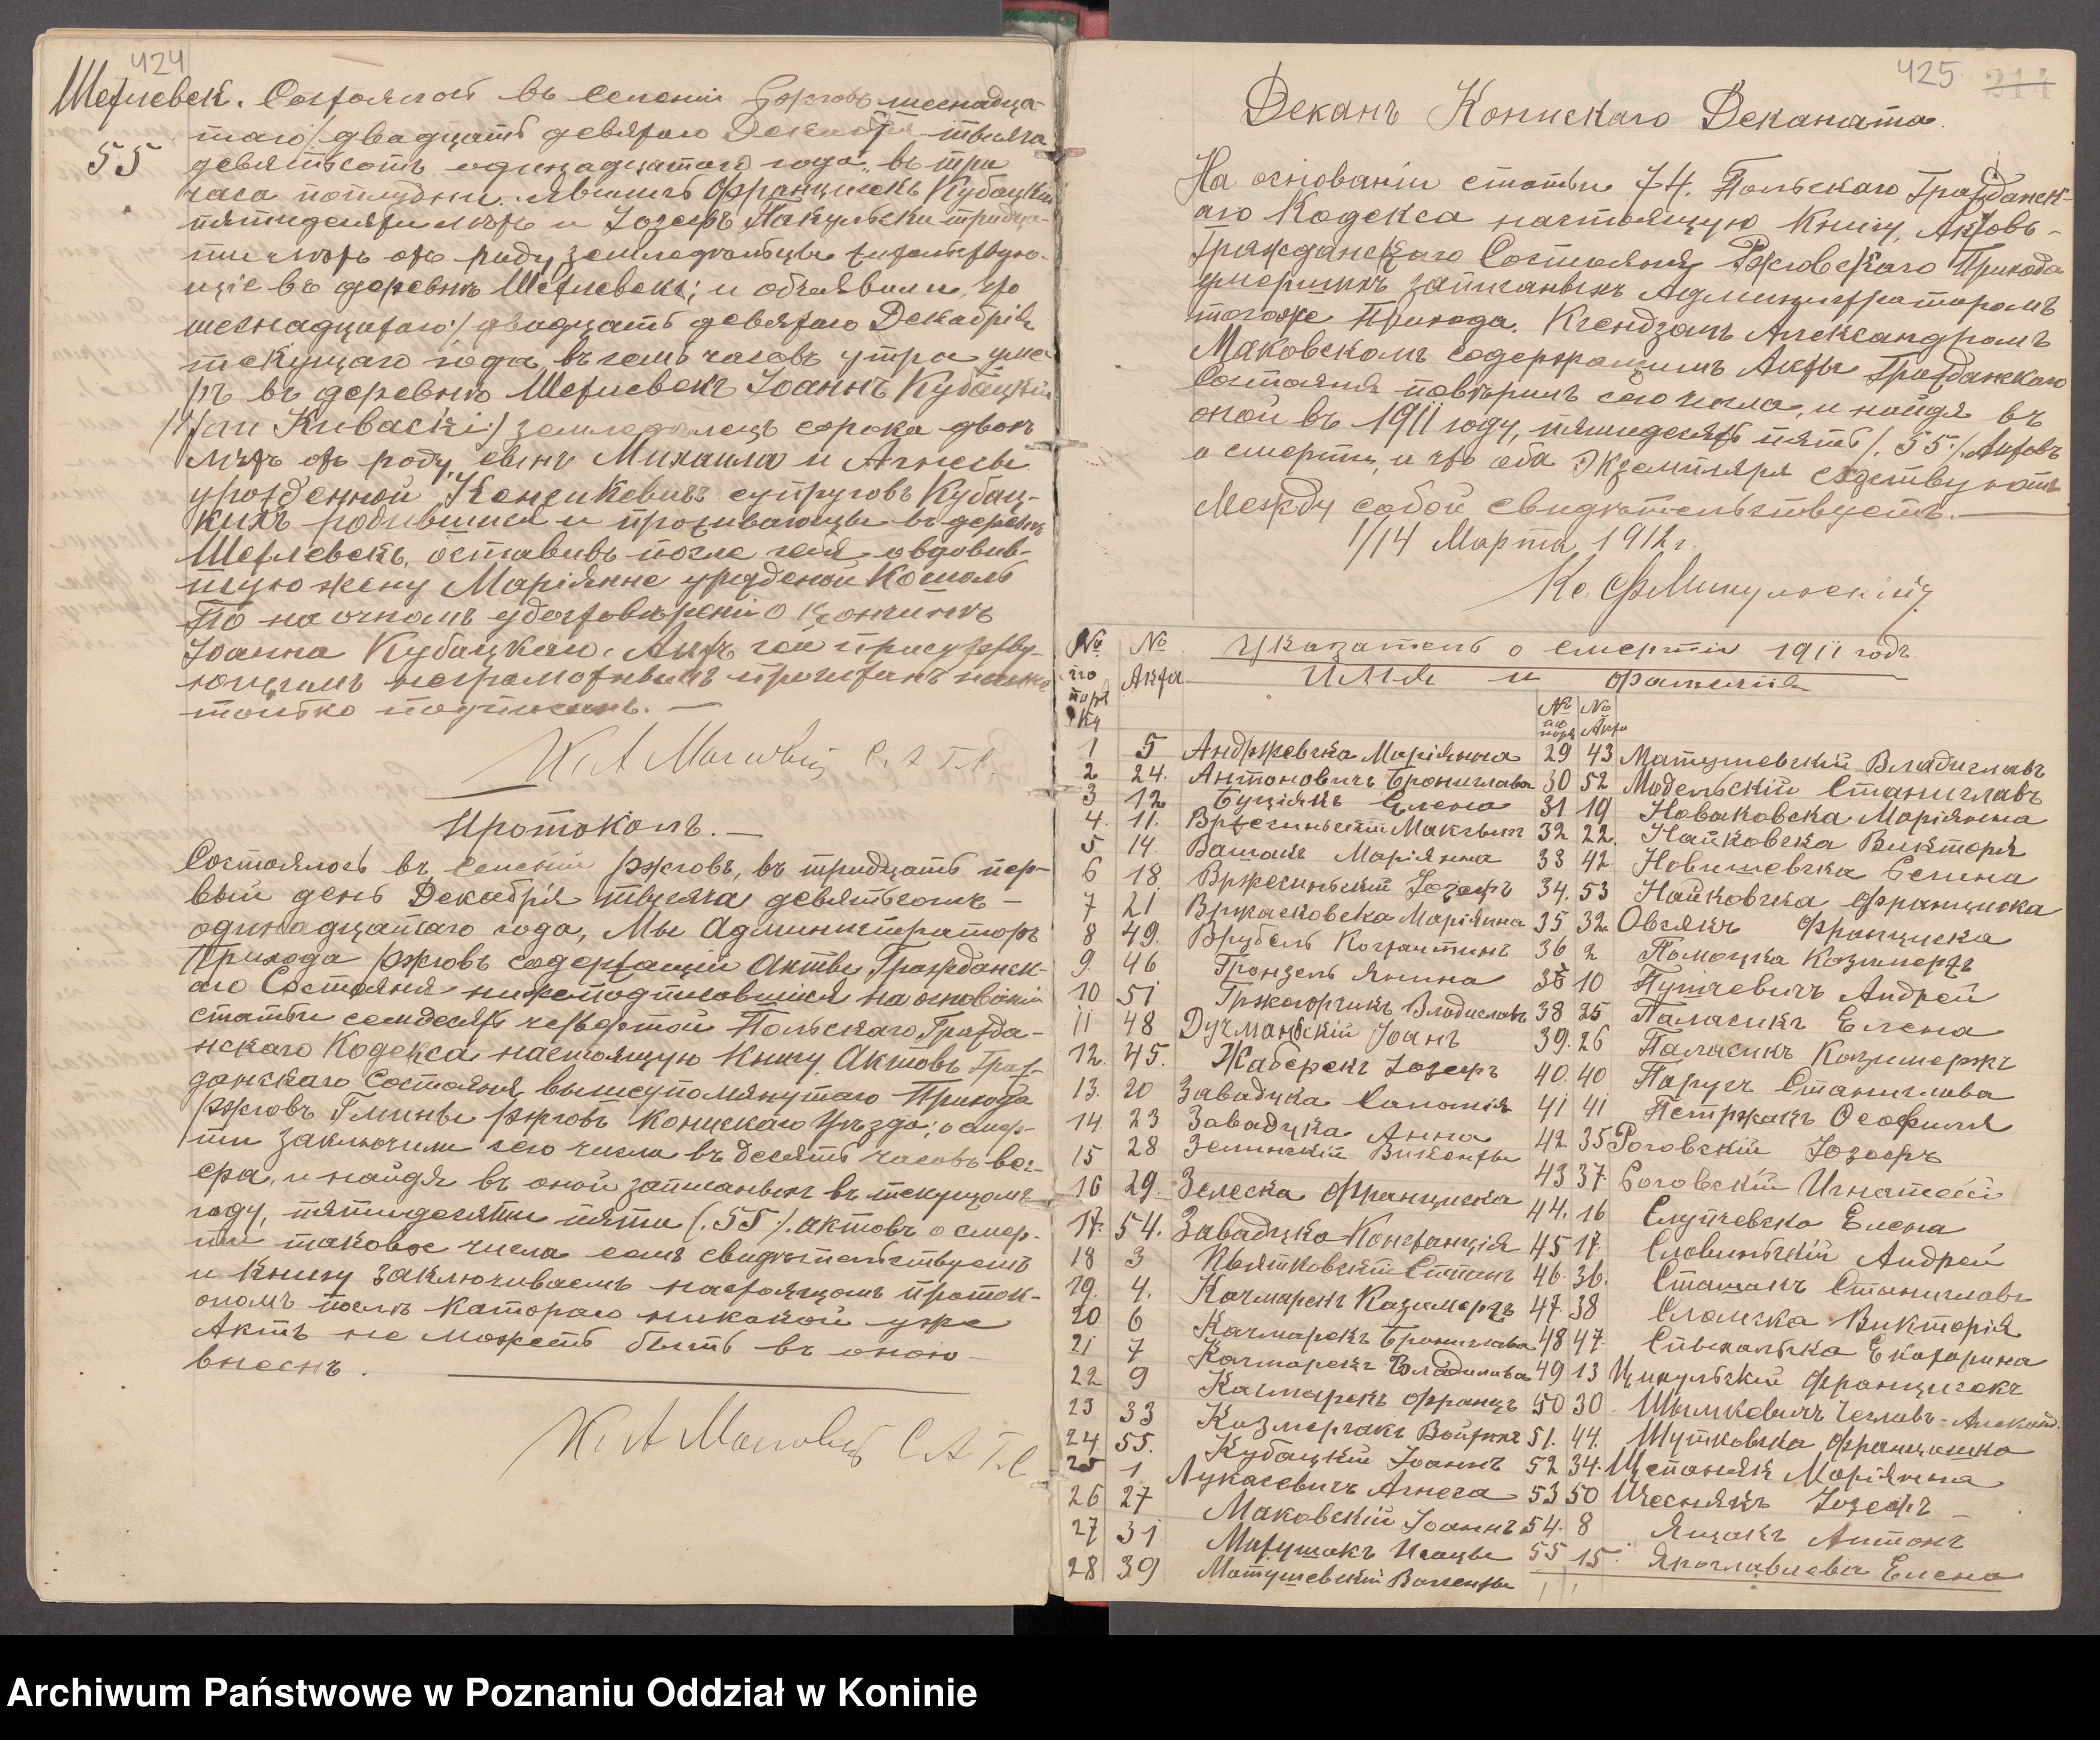 424
Шетлевек. Состоялось въ селеніи Ржговъ шеснадца-
таго/двадцать девятаго Декабря тысяча
55
девятьсотъ одинадцатаго года, въ три
часа пополудни. Явились Францишекъ Кубацкій
пятидесяти лѣтъ и Іозефъ Пакульски тридца-
ти лѣтъ отъ роду, земледѣльцы жительствую-
щіе въ деревнѣ Шетлевекъ; и объявили, что
шеснадцатаго/двадцать девятаго Декабрія
текущаго года, въ семь часовъ утра уме-
ръ въ деревнѣ Шетлевекъ Іоаннъ Кубацкій
/:Jan Kubacki:/ земледѣлецъ сорока двохъ
лѣтъ отъ роду, сынъ Михаила и Агнесы
урожденной супруговъ Кубац-
кихъ родившійся и проживающы въ деревнѣ
Шетлевекъ, оставивъ после себя овдовив-
шую жену Маріянне урожденой Космаль
По на очномъ удостовѣреніи о кончинѣ
Іоанна Кубацкаго, Актъ сей присутству-
ющимъ неграмотнымъ прочитанъ нами
только подписанъ. —
Кс. А Маковскій С. А Г. С.
Протоколъ. —
Состоялось въ селеніи Ржговъ, въ тридцать пер-
вый день Декабрія тысяча девятьсотъ —
одинадцатаго года, Мы Администраторъ
Прихода Ржговъ содержащій Акты Гражданск-
аго Состоянія нижеподписавшійся на основаніи
статьи семдесять четвертой Польскаго Гражда-
нскаго Кодекса настоящую Книгу Актовъ Граж-
данскаго Состоянія вышеупомянутаго Прихода
Ржговъ Гмины Ржговъ Конискаго Уѣзда; о смер-
ти заключили сего числа въ десять часовъ ве-
ера, и найдя въ оной записанныхъ въ текущомъ
году, пятидесяти пяти (.55/. актовъ о смер-
ти таковое числа симъ свидѣтельствуемъ
и Книгу заключиваемъ настоящомъ проток-
оломъ послѣ катораго никакой уже
Актъ не можетъ быть въ оною —
внеснъ.
Кс. А Маковскій С А Г. С
425 214
Деканъ Конискаго Деканата.
На основаніи статьи 74. Польскаго Гражданск-
аго Кодекса настоящую Книгу, Актовъ -
Гражданскаго Состоянія Ржговскаго Прихода
умершихъ записанныхъ Администраторомъ
тогоже Прихода. Ксендзомъ Александромъ
Маковскомъ содержащимъ Акты Гражданскаго
Состоянія повѣрилъ сего числа, и найдя въ
оной въ 1911 году, пятидесять пять /.55./. Актовъ
о смерти, и что оба Экземпляря сходствуютъ
между собой свидѣтельствуетъ. —
1/14 Марта 1912 г.
Кс. Ф Микульскій
Указатель о смерти 1911 годъ
№ по поряд ку № Акта Имя и фамилія № по поря № Акта
1 5 Анджевска Маріянна 29 43 Матушевскій Владиславъ
2 24. Антоновичъ Брониславъ 30 52 Модельскій Станиславъ
3 12 Буціякъ Елена 31 19 Новаковска Маріянна
4. 11. Вржесиньскій Максым 32 22. Найковска Викторія
5 14. Вашакъ Маріянна 33 42 Новишевска Селина
6 18 Вржесиньскій Іозефъ 34. 53 Найковска Францишка
7 21 Вржасковска Маріянна 35 32. Овсякъ Францишка
8 49. Врубель Костантинъ 36 2 Помоцка Казимержъ
9. 46 Грондзель Янина 35 10 Пупчевичъ Андрей
10 51 Гржегорчикъ Владиславъ 38 25 Паласикъ Елена
11 48 Дучманьскій Іоанъ 39. 26 Паласикъ Казимержъ
12. 45. Жаберекъ Іозефъ 40. 40 Паручъ Станислава
13. 20 Завадцка Саломія 41 41 Петржакъ Феофиля
14. 23 Завадцка Анна 42. 35 Роговскій Юзефъ
15 28 Зелинскій Викенты 43 37. Роговскій Игнатей
16 29. Зелеска Францишка 44. 16 Слупчевска Елена
17. 54. Завадцка Констанція 45 17. Словиньскій Андрей
18 3 Квятковскій Степанъ 46. 36. Сташакъ Станиславъ
19. 4. Качмарекъ Казимержъ 47. 38 Сломска Викторія
20 6 Качмарекъ Бронислава 48 47. Сивкольска Екатарина
21 7 Качмарекъ Владислава 49 13 Цикульскій Францишекъ
22 9 Качмарекъ Францъ 50 30. Шымкевичъ Чеславъ-Александ.
23 33 Казмерчакъ Войтехъ 51. 44. Шутковска Францишка
24. 55. Кубацкій Іоаннъ 52 34. Щепанякъ Маріянна
25 1 Лукасевичъ Агнеса 53 50 Щеснякъ Іозефъ
26 27 Маковскій Іоаннъ 54. 8 Ящакъ Антонъ
27 31 Матушакъ Игнацы 55 15. Ярославлева Елена
28 39 Матушевскій Валенты
Archiwum Państwowe w Poznaniu Oddział w Koninie